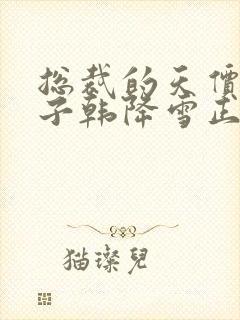 总裁的天價
子韩降雪正
猫璨兒